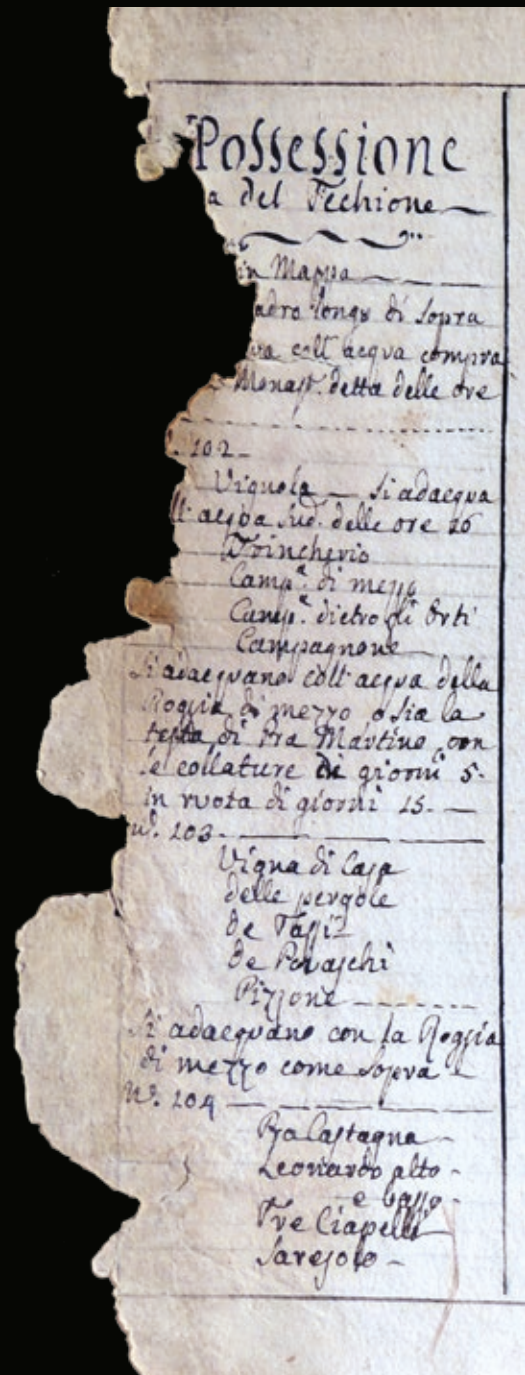 Possessione
a del Techione
in Mappa
adro longo di sopra
ura coll' acqua compra
Monast. detta delle ore
102
Vignola — si adacqua
ll' acqua sud. delle ore 26
Camp.ª di mezzo
Camp.ª dietro di Orti
Campagnone
Si adacquano coll' acqua della
Roggia di mezzo o sia la
testa di Pra Martino con
le collature di giorni 5.
in ruota di giorni 15. —
n.º 103.
Vigna di Casa
delle pergole
de Tassi
de Povaschi
Pizzone
Si adacquano con la Roggia
di mezzo come sopra
N.º 104
Pra Castagna
Leonardo alto
e basso
Tre Ciapelli